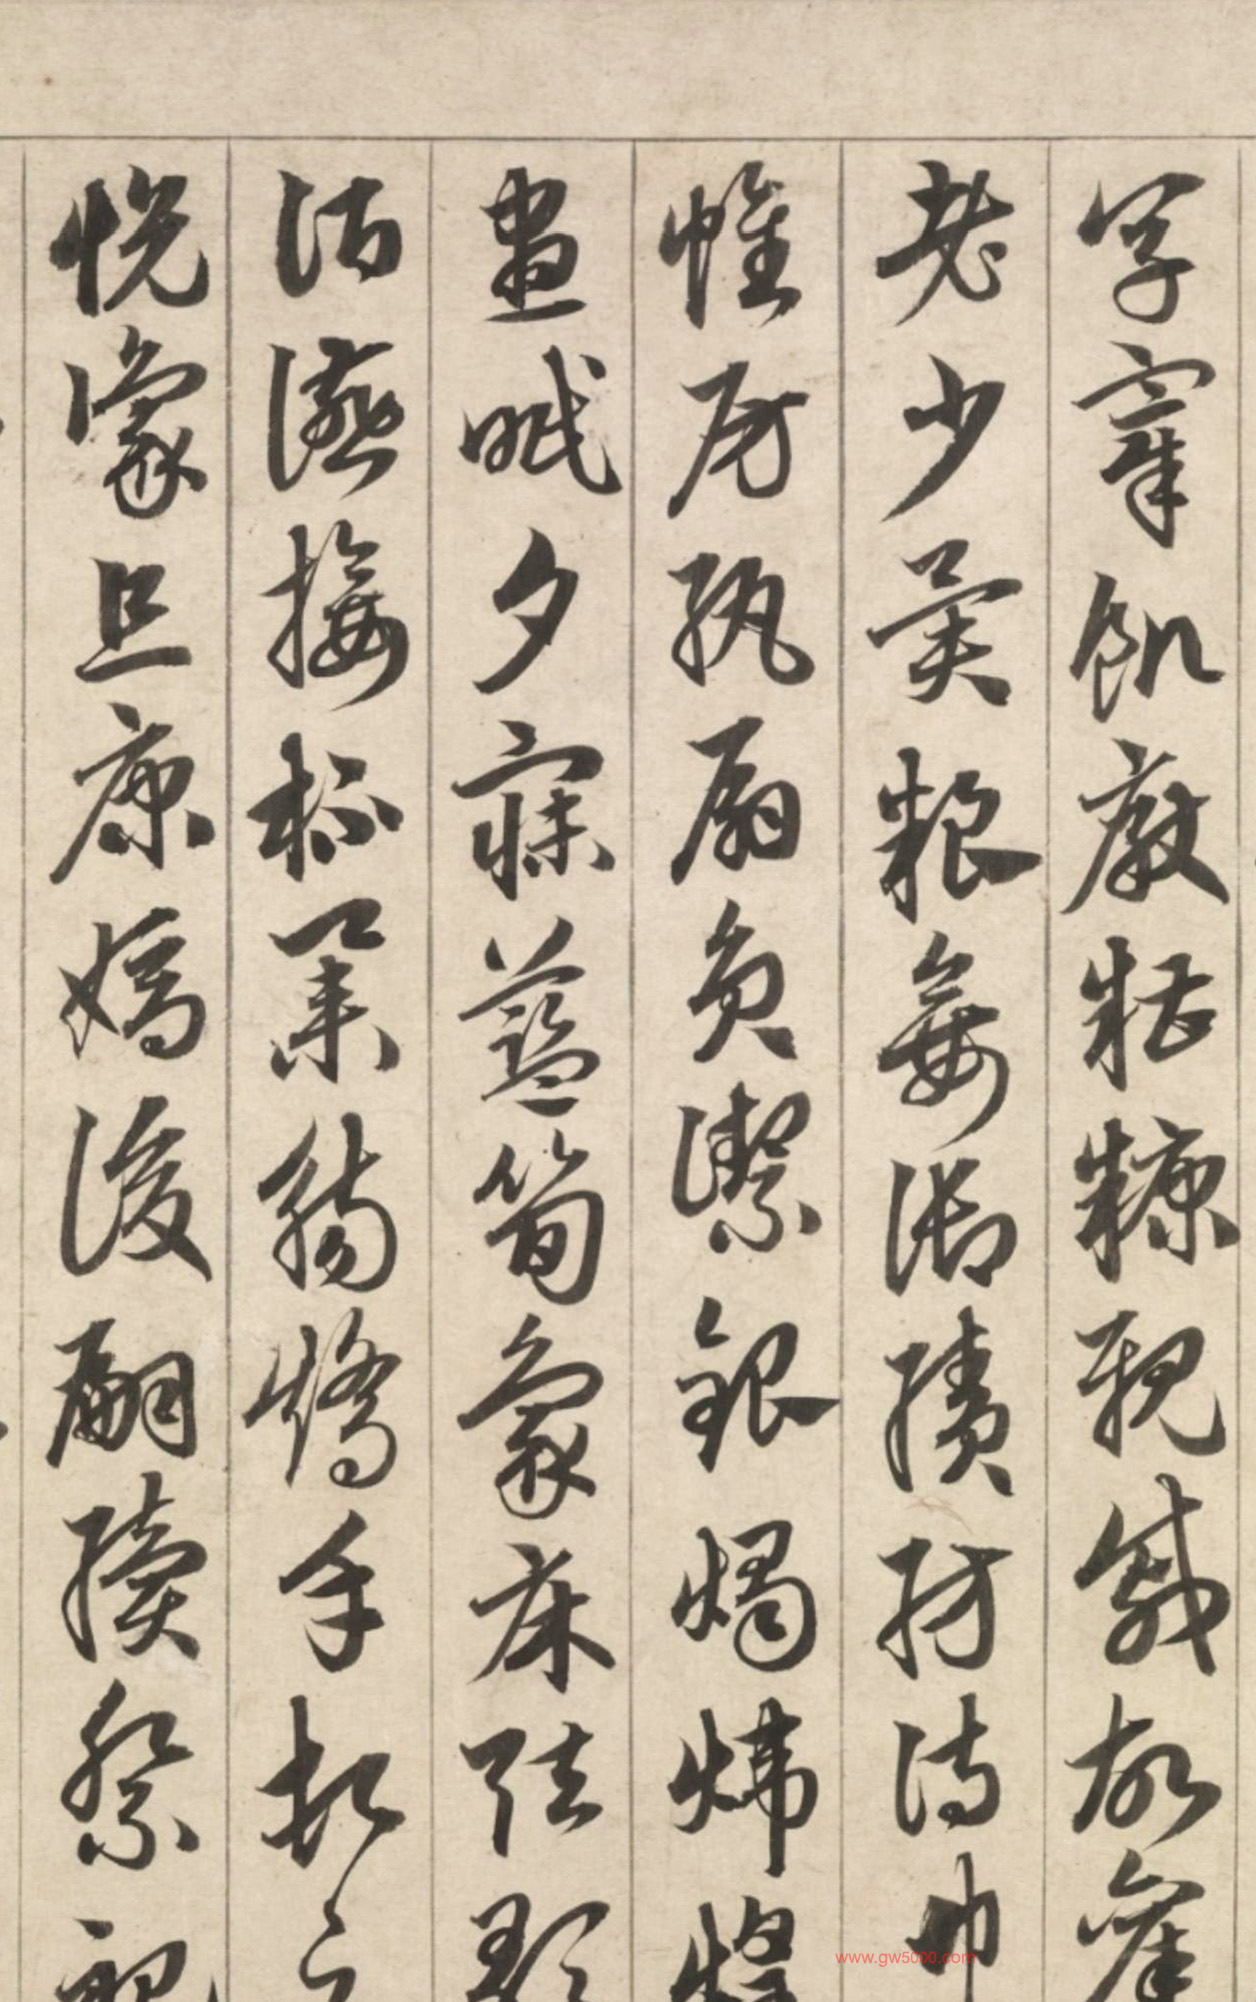 享宰飢厭糟糠親戚故舊
老少異糧妾御績紡侍巾
帷房紈扇員潔銀燭煒煌
晝眠夕寐藍筍象床弦歌
酒讌接杯舉觴矯手頓足
悅豫且康嫡後嗣續祭祀
www.gw5000.com